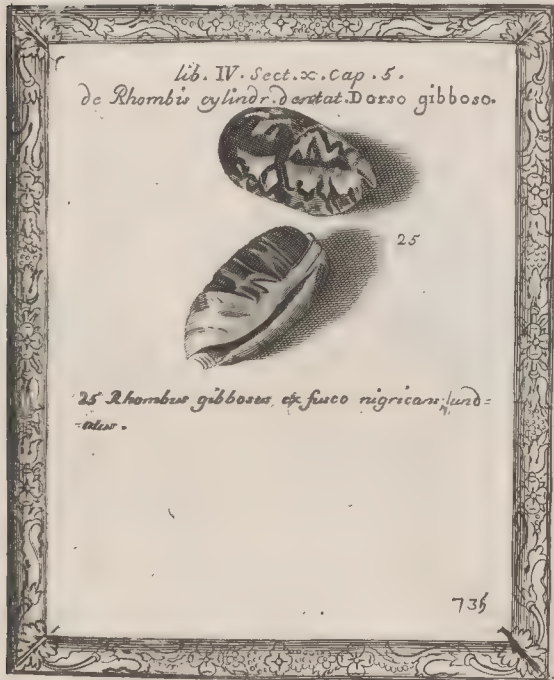 lib. IV. Sect. x. Cap. 5.
de Rhombis cylindr. dentat. Dorso gibboso.
25
25 Rhombus gibbosus, ex fusco nigricans, und=
=atus.